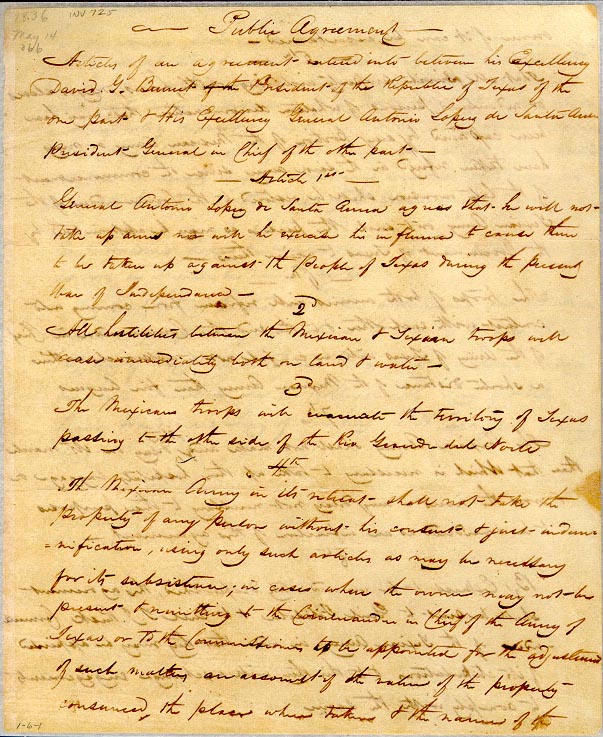 1836
May 14
266
INV 725
Public Agreement
Articles of an agreement entered into between his Excellency
David G. Burnet of the President of the Republic of Texas of the
one part & His Excellency General Antonio Lopez de Santa Anna
President General in Chief of the other part —
Article 1st
General Antonio Lopez de Santa Anna agrees that he will not
take up arms nor will he exercise his influence to cause them
to be taken up against the People of Texas during the present
War of Independence —
2d
All hostilities between the Mexican & Texian troops will
cease immediately both on land & water —
3d
The Mexican troops will evacuate the territory of Texas
passing to the other side of the Rio Grande del Norte
4th
The Mexican Army in its retreat shall not take the
property of any person without his consent & just indem
=nification, using only such articles as may be necessary
for its subsistence, in cases where the owner may not be
present & remitting to the Commander in Chief of the Army of
Texas or to the Commissioner to be appointed for the adjustment
of such matters an account of the value of the property
consumed, the place where taken & the name of the
1-6-1